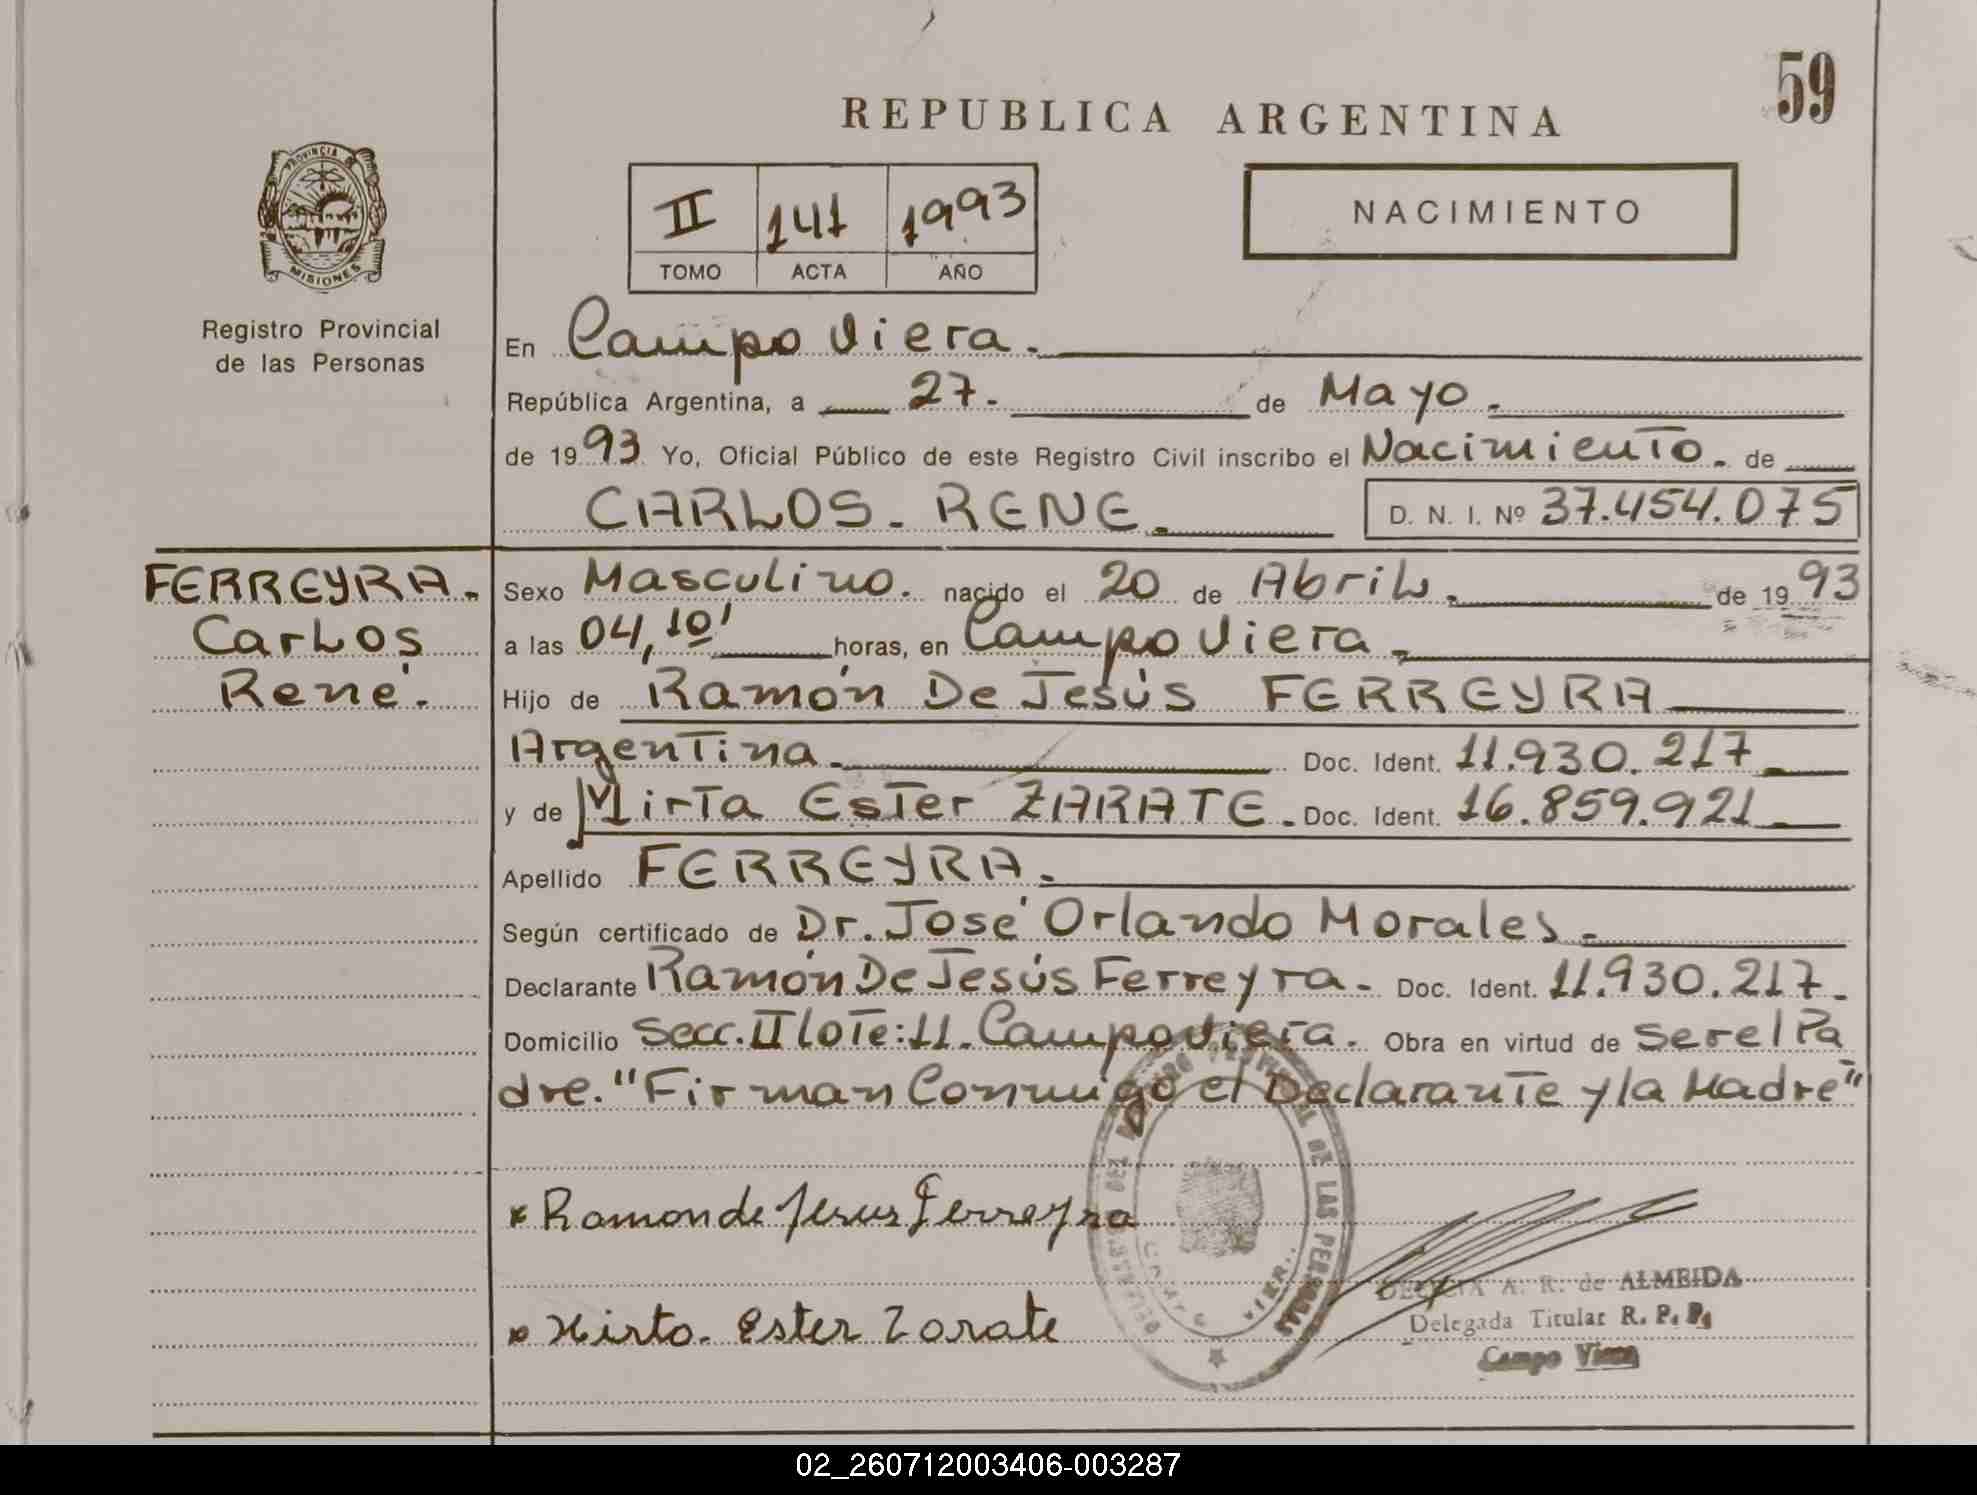 59
REPUBLICA ARGENTINA
PROVINCIA DE
MISIONES
Registro Provincial
de las Personas
II 141 1993
TOMO ACTA AÑO
NACIMIENTO
En Campo Viera.
República Argentina, a 27. de Mayo.
de 1993 Yo, Oficial Público de este Registro Civil inscribo el Nacimiento. de
CARLOS. RENE. D. N. I. Nº 37.454.075
FERREYRA.
Carlos
René.
Sexo Masculino. nacido el 20 de Abril. de 1993
a las 04,10' horas, en Campo Viera.
Hijo de Ramón De Jesús FERREYRA
Argentina. Doc. Ident. 11.930.217
y de Mirta Ester ZARATE. Doc. Ident. 16.859.921
Apellido FERREYRA.
Según certificado de Dr. José Orlando Morales.
Declarante Ramón De Jesús Ferreyra. Doc. Ident. 11.930.217.
Domicilio Secc. II lote: 11. Campo Viera. Obra en virtud de ser el Pa
dre. "Firman Conmigo el Declarante y la Madre"
x Ramon de Jesus Ferreyra
x Mirta. Ester Zarate
A. R. de ALMEIDA
Delegada Titular R. P. P.
Campo Viera
02_260712003406-003287